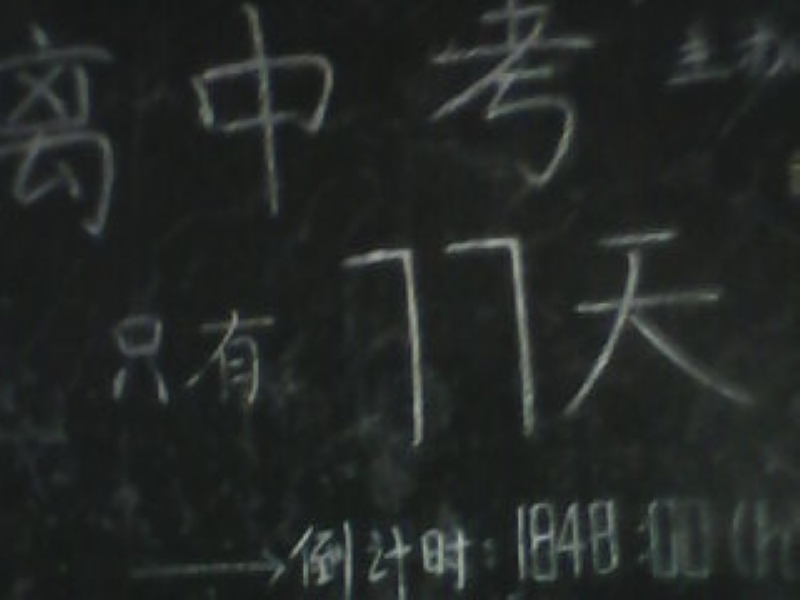 离中考
只有77天
→倒计时：1848:00(h